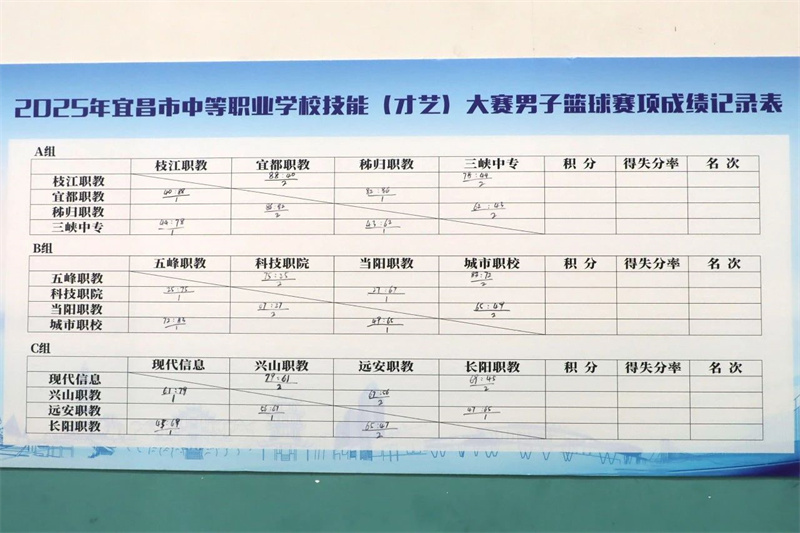 2025年宜昌市中等职业学校技能（才艺）大赛男子篮球赛项成绩记录表
A组
枝江职教 宜都职教 秭归职教 三峡中专 积 分 得失分率 名 次
枝江职教 88:40 2 78:44 2
宜都职教 40:88 1 82:86 1
秭归职教 86:82 2 62:43 2
三峡中专 44:78 1 43:62 1
B组
五峰职教 科技职院 当阳职教 城市职校 积 分 得失分率 名 次
五峰职教 75:25 2 2
科技职院 25:75 1 27:67 1
当阳职教 67:27 2 65:49 2
城市职校 1 49:65 1
C组
现代信息 兴山职教 远安职教 长阳职教 积 分 得失分率 名 次
现代信息 79:61 2 69:45 2
兴山职教 61:79 1 67:56 2
远安职教 56:67 1 47:65 1
长阳职教 45:69 1 65:47 2